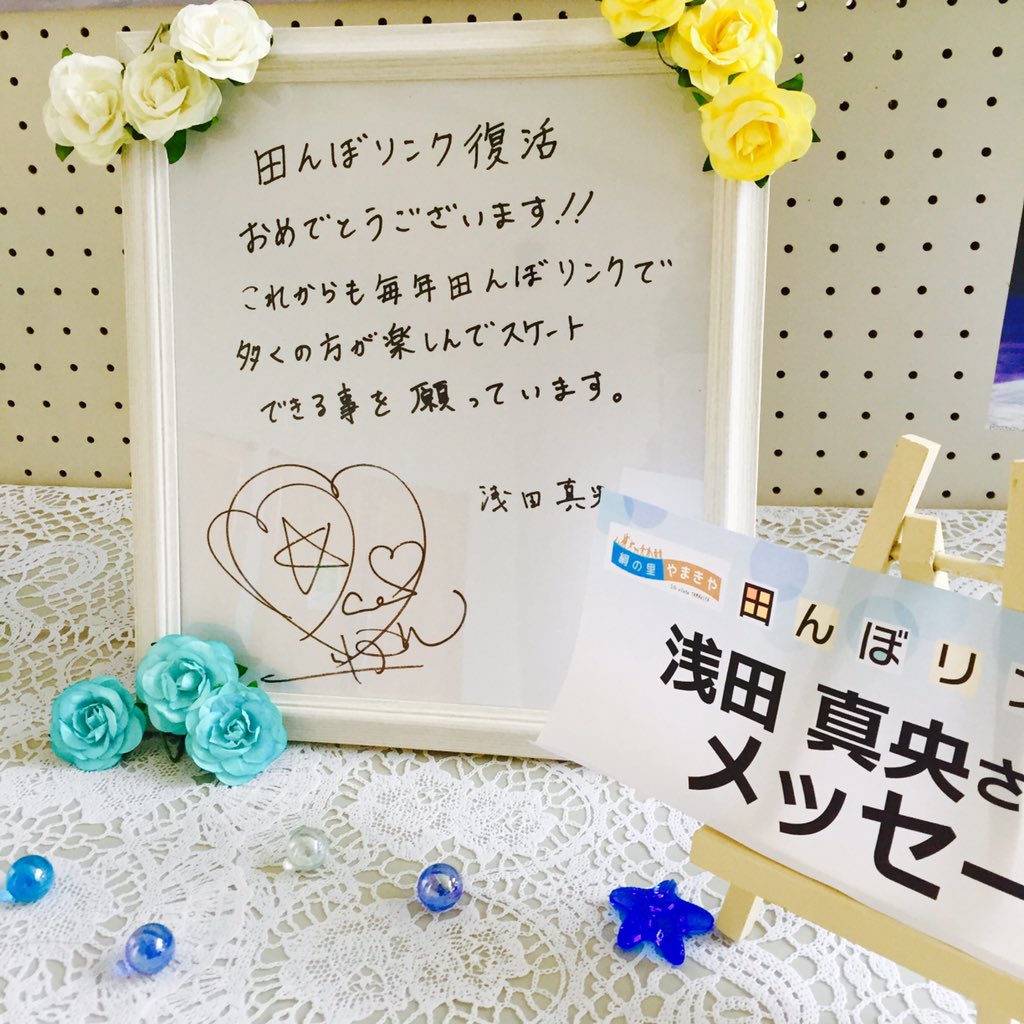 田んぼリンク復活
おめでとうございます!!
これからも毎年田んぼリンクで
多くの方が楽しんでスケート
できる事を願っています。
浅田真央
絹の里 やまきや
田んぼリン
浅田真央さ
メッセー